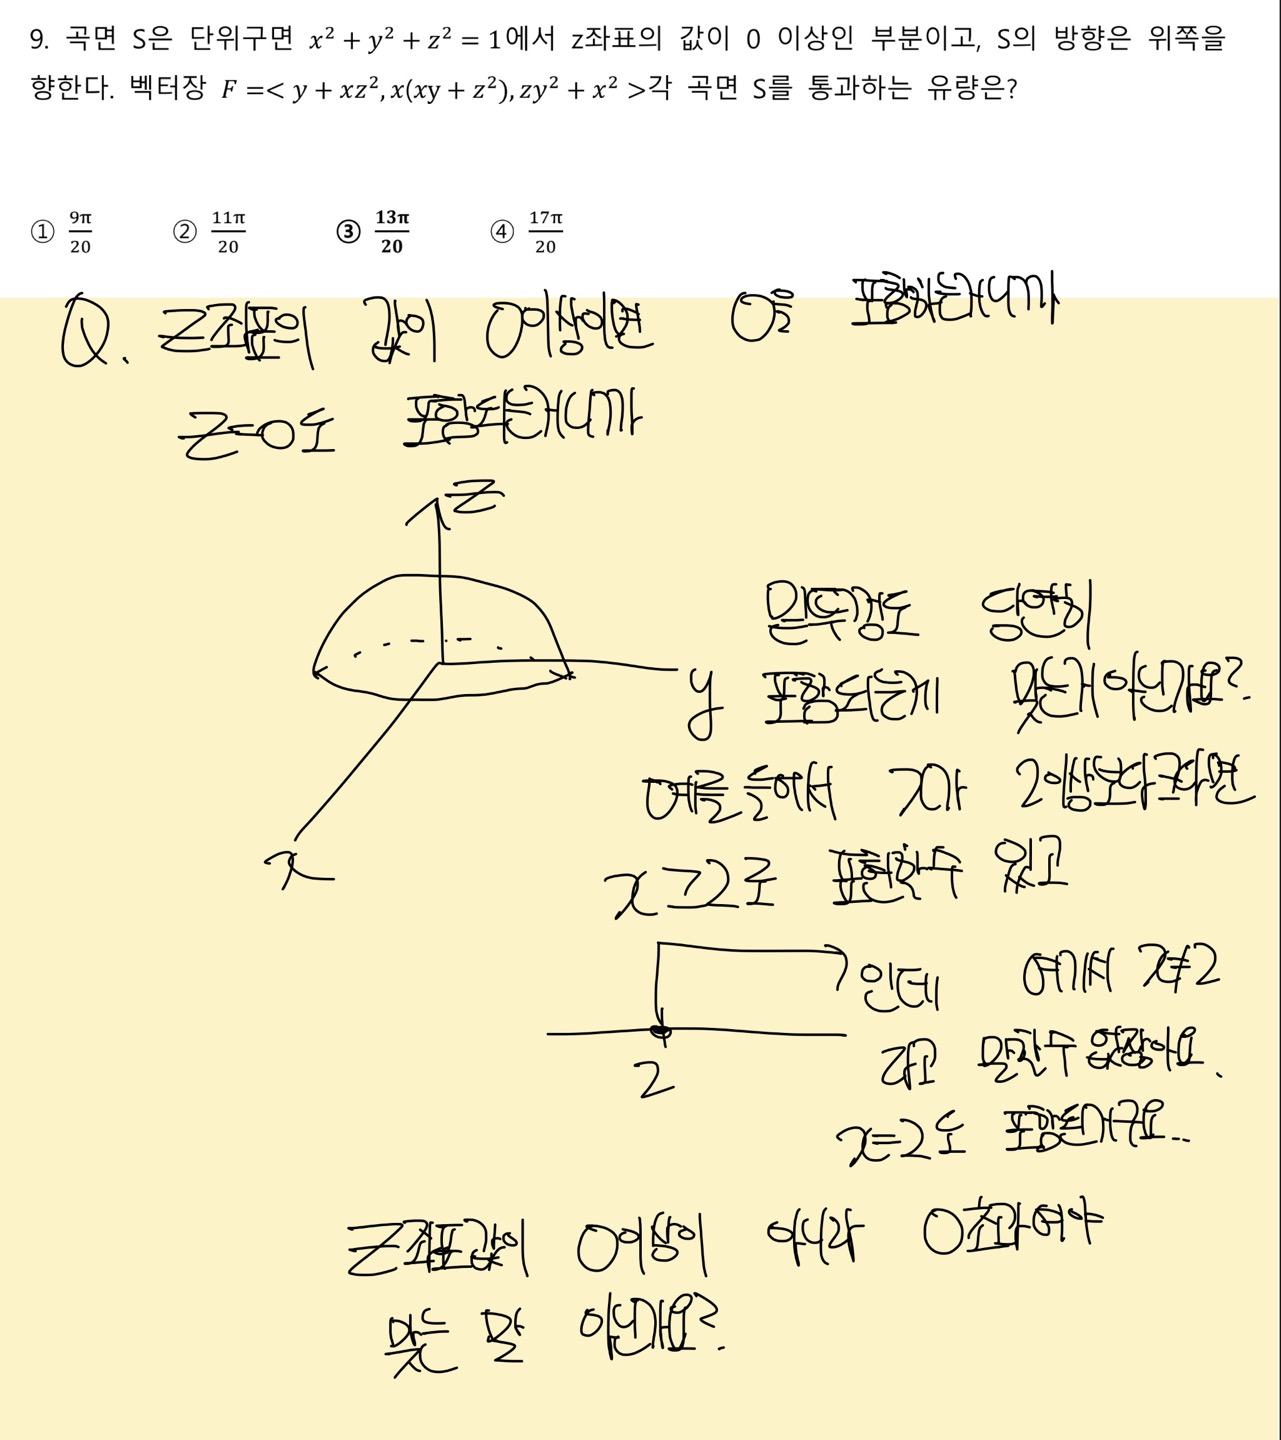 9. 곡면 S은 단위구면 x² + y² + z² = 1에서 z좌표의 값이 0 이상인 부분이고, S의 방향은 위쪽을
향한다. 벡터장 F =< y + xz², x(xy + z²), zy² + x² >각 곡면 S를 통과하는 유량은?
① 9π/20 ② 11π/20 ③ 13π/20 ④ 17π/20
Q. z좌표의 값이 0이상이면 0을 포함하는거니까
z=0도 포함되는거니까
z
밑뚜껑도 당연히
y 포함되는게 맞는거 아닌가요?
예를 들어서 x가 2이상보다 크다면
x
x≥2로 표현할수 있고
인데 여기서 x≠2
2
라고 말할수 없잖아요.
x=2도 포함된거구요..
z좌표값이 0이상이 아니라 0초과여야
맞는 말 아닌가요?